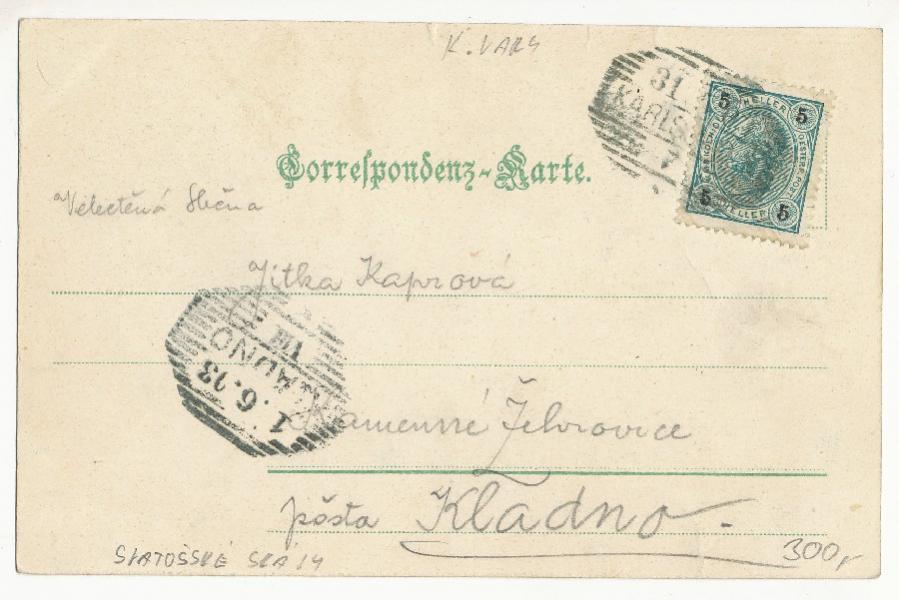 K. VARY
31
KARLS
7
5 HELLER 5
5 HELLER 5
Correspondenz-Karte.
Velectěná Slečna
Jitka Kaprová
VIII
KLADNO
1. 6. 13
Kamenné Žehrovice
pošta Kladno.
SVATOŠSKÉ SKÁLY
300,-